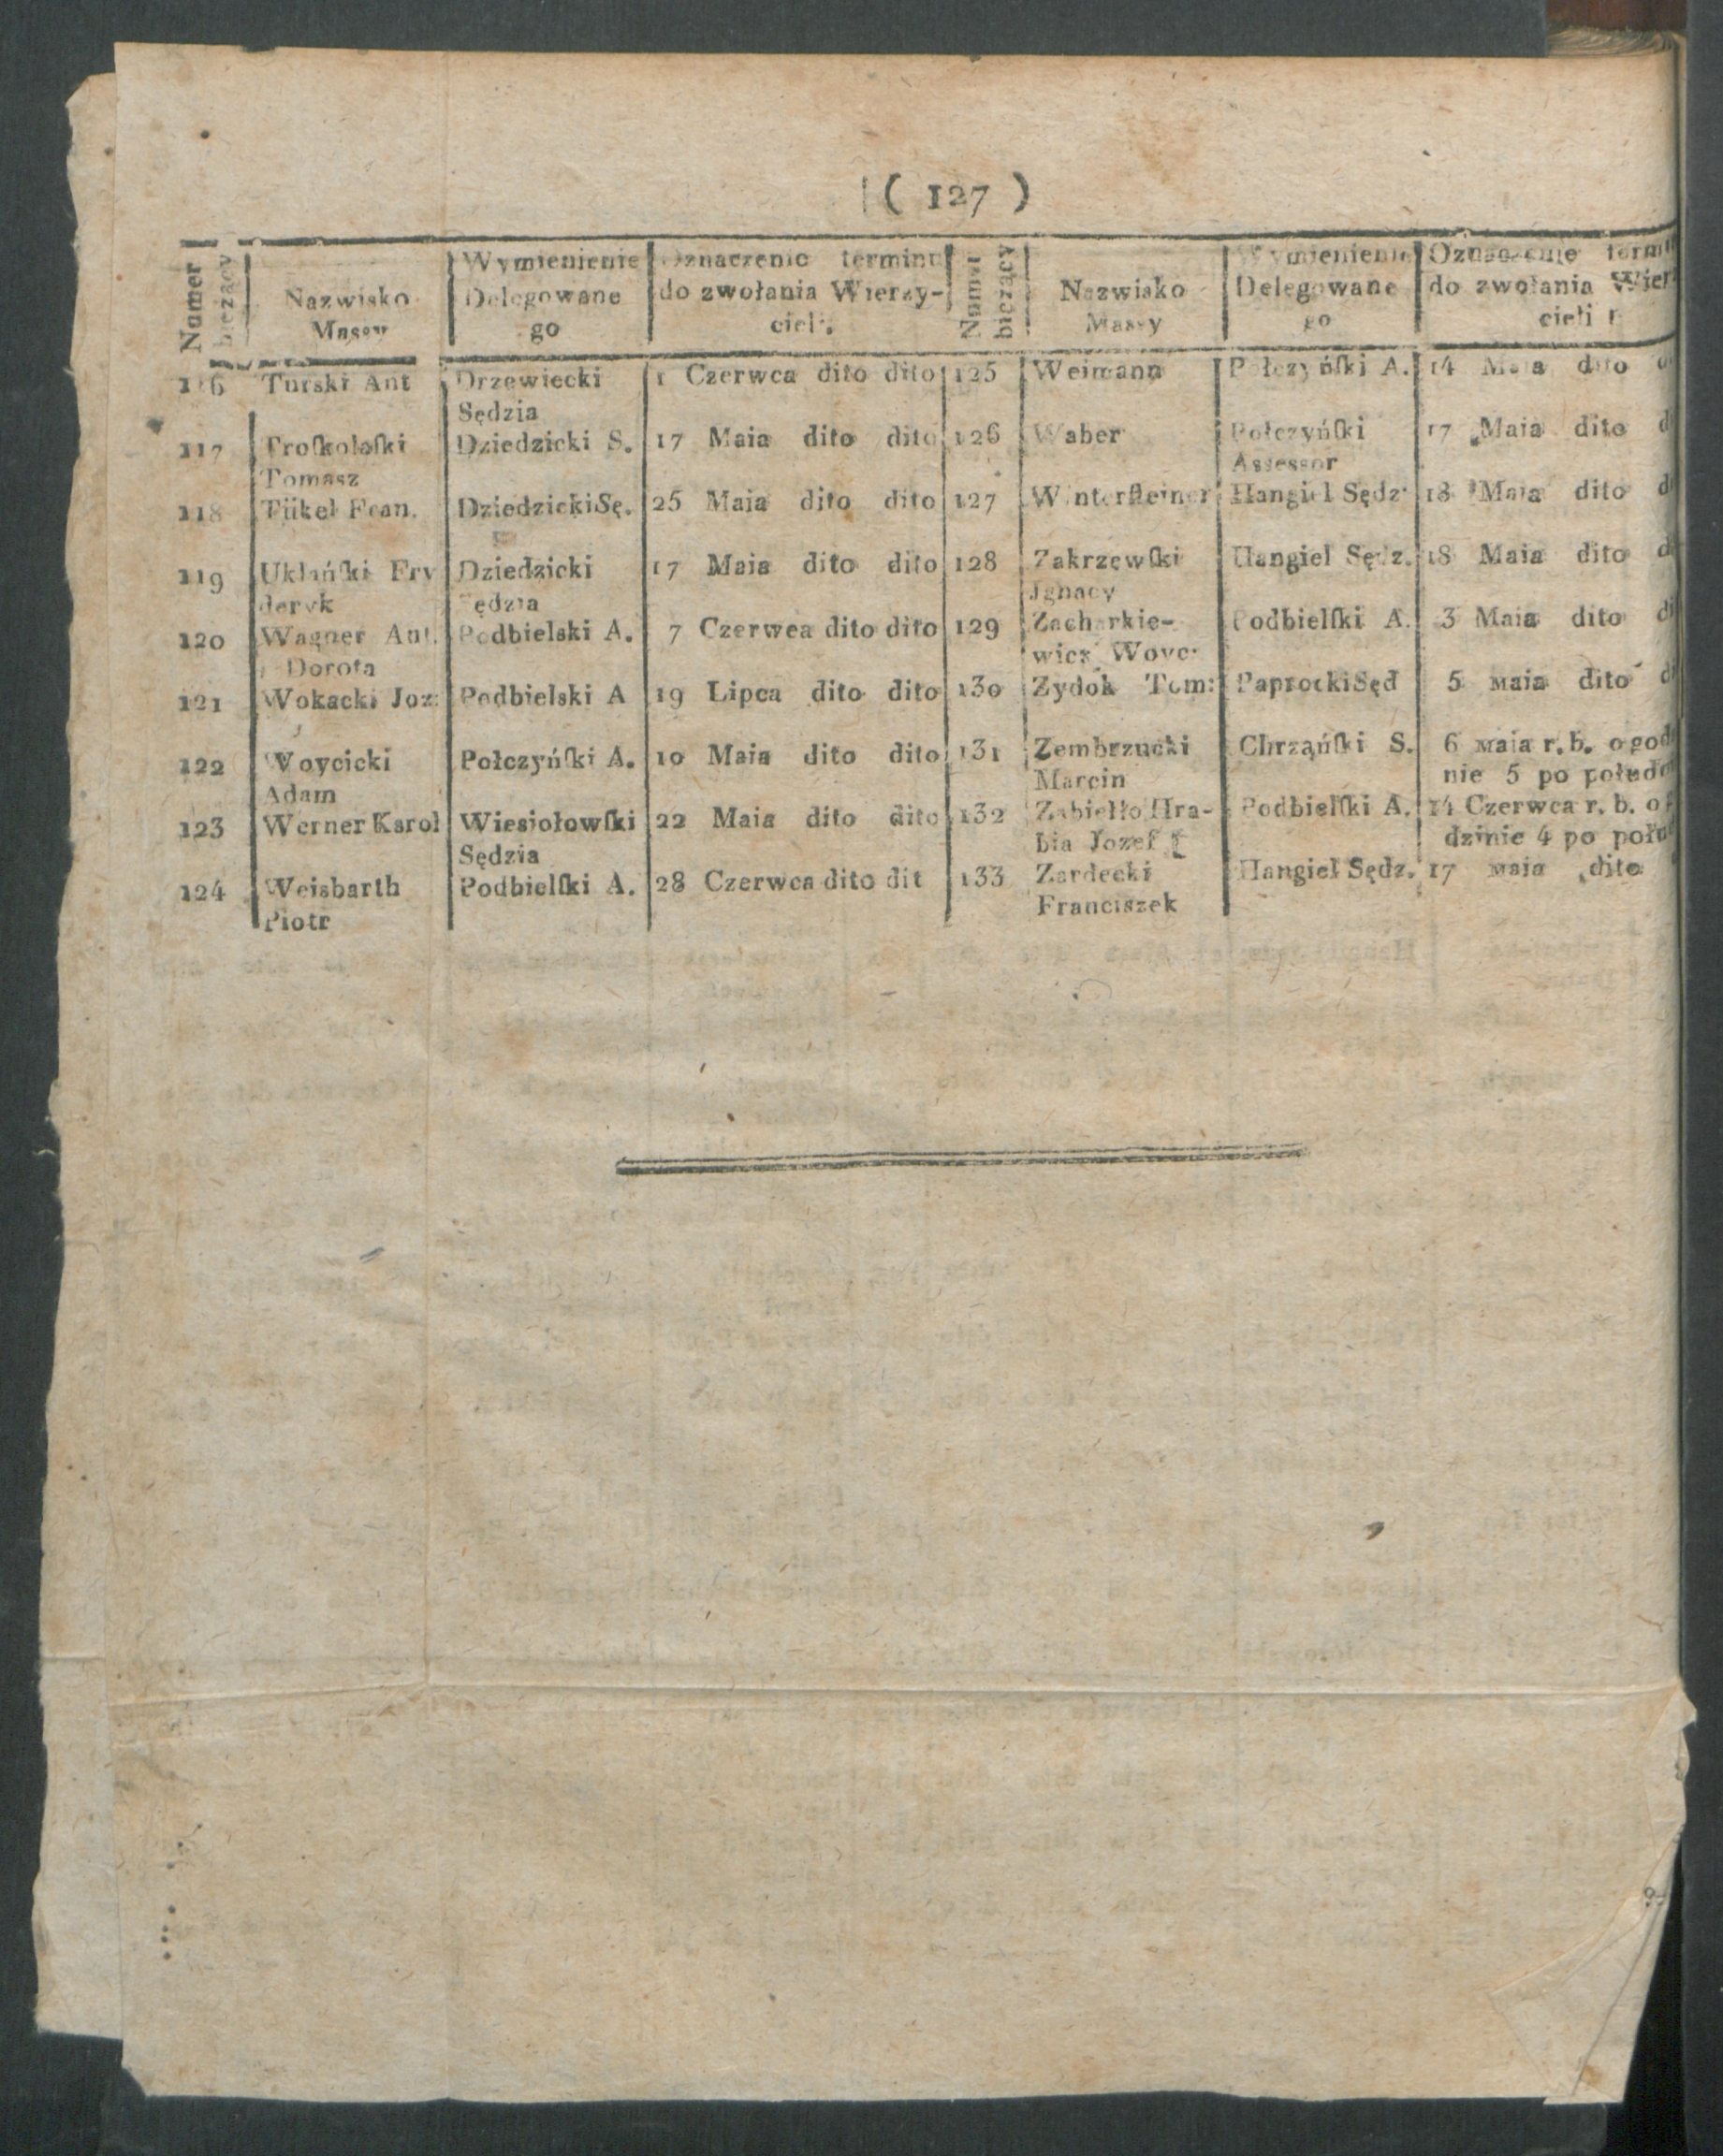 ( 127 )
Numer bieżący
Nazwisko
Massy
Wymienienie
Delegowane
go
Oznaczenie terminu
do zwołania Wierzy-
cieli.
Numer bieżący
Nazwisko
Massy
Wymienienie
Delegowane
go
Oznaczenie
do zwołania
cieli
116 Turski Ant Drzewiecki 1 Czerwca dito dito
Sędzia
117 Troſkolaſki Dziedzicki S. 17 Maia dito dito
Tomasz
118 Tükel Fran. DziedzickiSę. 25 Maia dito dito
119 Uklańſki Fry Dziedzicki 17 Maia dito dito
deryk Sędzia
120 Wagner Ant. Podbielski A. 7 Czerwca dito dito
Dorota
121 Wokacki Joz: Podbielski A 19 Lipca dito dito
122 Woycicki Połczyńſki A. 10 Maia dito dito
Adam
123 Werner Karol Wiesiołowſki 22 Maia dito dito
Sędzia
124 Weisbarth Podbielſki A. 28 Czerwca dito dit
Piotr
125 Weimann Połczyńſki A. 14 Maia dito
126 Waber Połczyńſki 17 Maia dito
Assessor
127 Winterſteiner Hangiel Sędz 18 Maia dito
128 Zakrzewſki Hangiel Sędz. 18 Maia dito
Jgnacy
129 Zacharkie- Podbielſki A. 3 Maia dito
wicz Woyc:
130 Zydok Tom: PaprockiSęd 5 maia dito
131 Zembrzucki Chrząńſki S. 6 maia r. b. o god
Marcin nie 5 po połud
132 Zabiełło Hra- Podbielſki A. 14 Czerwca r. b. o
bia Jozef dzinie 4 po połu
133 Zardecki Hangiel Sędz. 17 maia dito
Franciszek